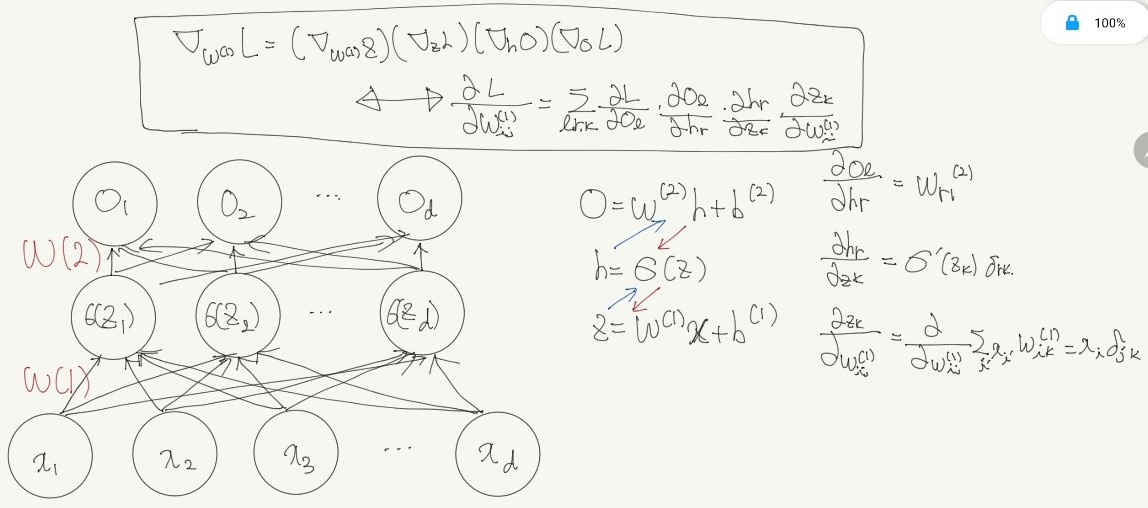 100%
∇_{W(1)} L = (∇_{W(1)} z)(∇_z h)(∇_h O)(∇_O L)
↔ ∂L/∂W_{ij}^{(1)} = Σ_{l,r,k} ∂L/∂O_l · ∂O_l/∂h_r · ∂h_r/∂z_k · ∂z_k/∂W_{ij}^{(1)}
O_1 O_2 ... O_d
W(2)
σ(z_1) σ(z_2) ... σ(z_d)
W(1)
x_1 x_2 x_3 ... x_d
O = W^{(2)} h + b^{(2)}
h = σ(z)
z = W^{(1)} x + b^{(1)}
∂O_l/∂h_r = W_{rl}^{(2)}
∂h_r/∂z_k = σ'(z_k) δ_{rk}.
∂z_k/∂W_{ij}^{(1)} = ∂/∂W_{ij}^{(1)} Σ_i x_i W_{ik}^{(1)} = x_i δ_{jk}